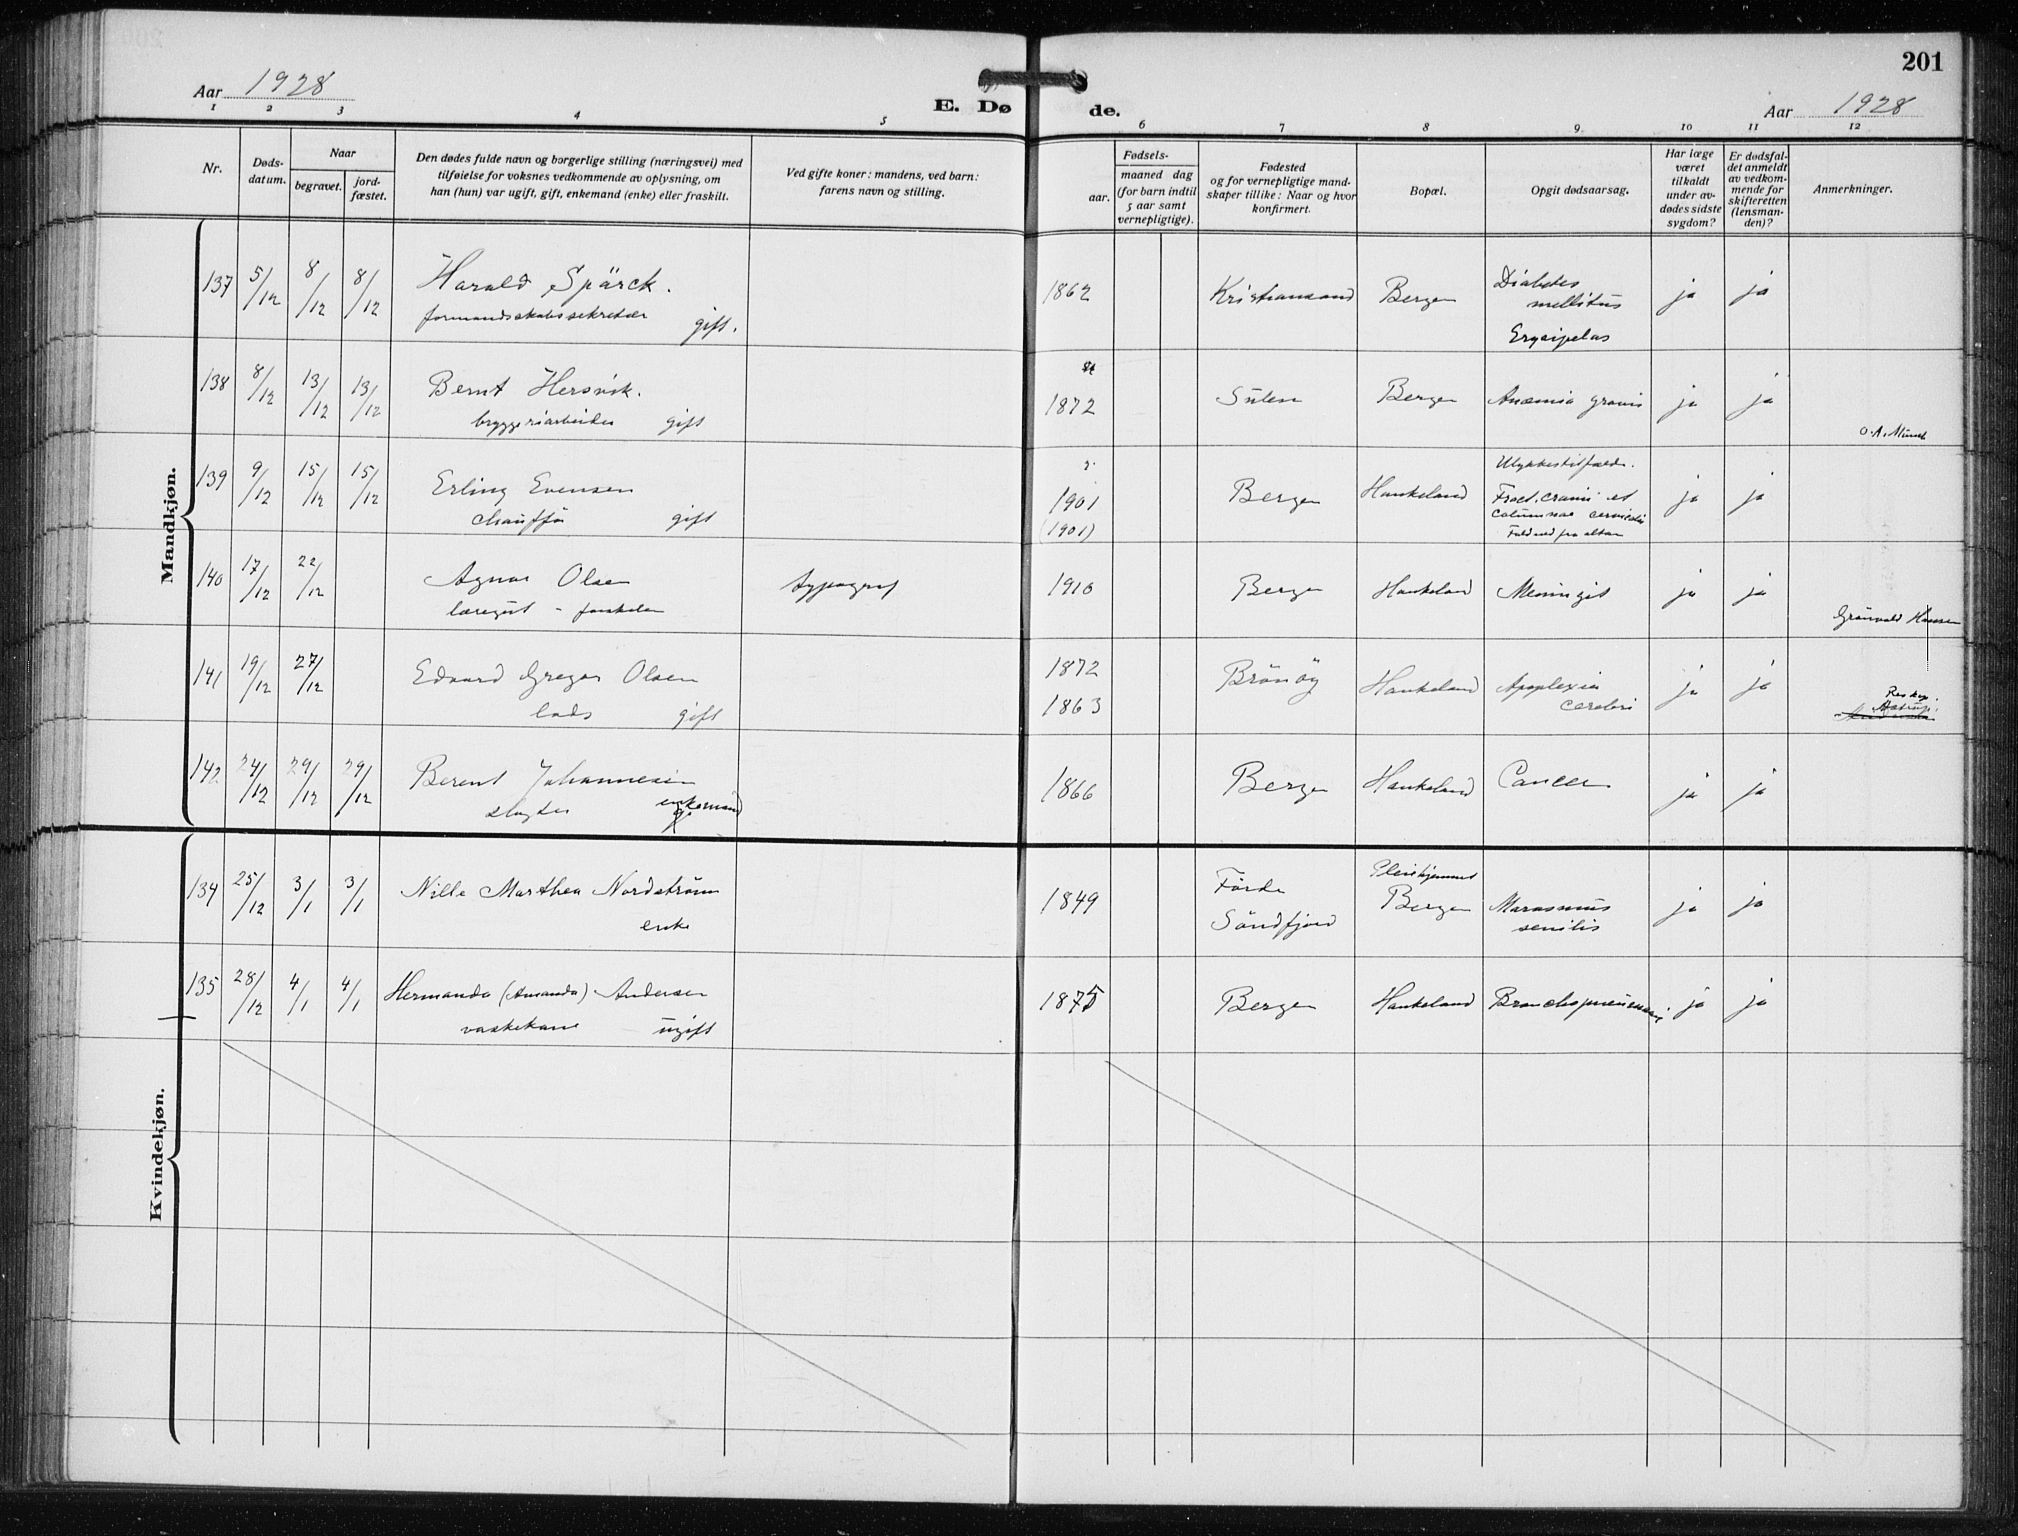 201
Aar 1928
E. Dø
de.
Aar 1928
1 2 3 4 5 6 7 8 9. 10 11 12
Nr.
Døds-
datum.
Naar
begravet.
jord-
fæstet.
Den dødes fulde navn og borgerlige stilling (næringsvei) med
tilføielse for voksnes vedkommende av oplysning, om
han (hun) var ugift, gift, enkemand (enke) eller fraskilt.
Ved gifte koner: mandens, ved barn:
farens navn og stilling.
Fødsels-
aar.
maaned dag
(for barn indtil
5 aar samt
vernepligtige).
Fødested
og for vernepligtige mand-
skaper tillike: Naar og hvor
konfirmert.
Bopæl.
Opgit dødsaarsag.
Har læge
været
tilkaldt
under av-
dødes sidste
sygdom?
Er dødsfal-
det anmeldt
av vedkom-
mende for
skifteretten
(lensman-
den)?
Anmerkninger.
Mandkjøn.
137 5/12 8/12 8/12 Harald Spärck. 1862 Kristiansand Bergen Diabetes ja ja
mellitus
formandsskabssekretær gift.
Erysipelas
138 8/12 13/12 13/12 Bernt Hersvik. 1872 Sulen Bergen Anæmia gravis ja ja
bryggeriarbeider gift
O. A. Munch
139 9/12 15/12 15/12 Erling Evensen 1901 Bergen Haukeland Ulykkestilfælde. ja ja
Fract. cranii et
chauffør gift (1901) columnae cervicalis
Fald ned fra altan
140 17/12 22/12 Agnar Olsen typograf 1910 Bergen Haukeland Meningit ja ja
læregut -
Grönvold Hansen
141 19/12 27/12 Edvard Gregor Olsen 1872 Brönöy Haukeland Apoplexia ja ja
cerebri
lods gift 1863
Res. kap.
Astrup.
142 24/12 29/12 29/12 Berent Johannessen 1866 Bergen Haukeland Cancer ja ja
slagter enkemand
Kvindekjøn.
134 25/12 3/1 3/1 Nille Marthea Nordström 1849 Förde Pleiehjemmet ja ja
Bergen Marasmus
enke Söndfjord senilis
135 28/12 4/1 4/1 Hermanda (Amanda) Andersen 1875 Bergen Haukeland Bronchopneumoni ja ja
vaskekone ugift